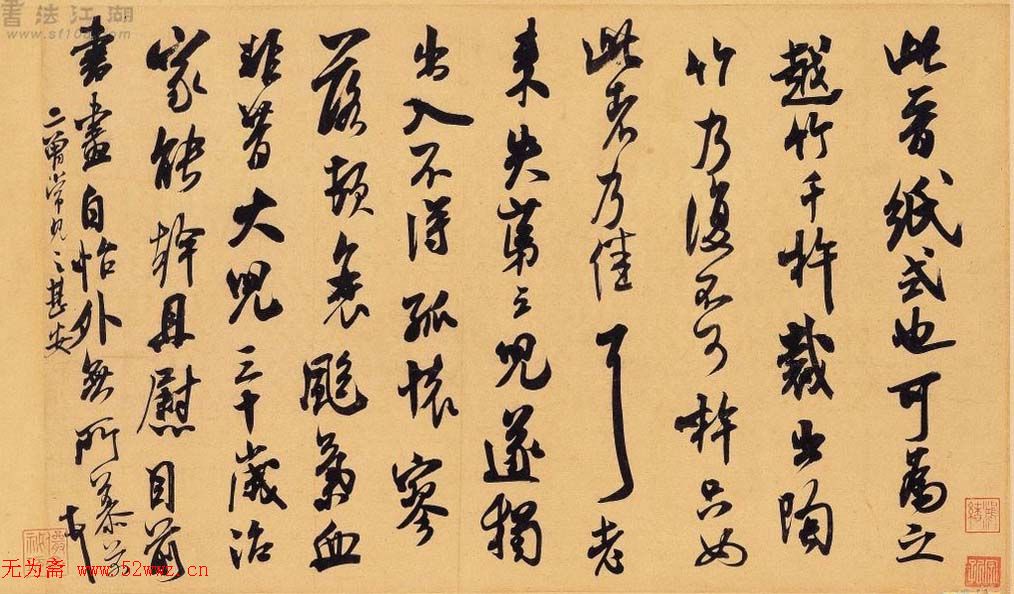 此晉紙式也可為之
越竹千杵裁出陶
竹乃復不可杵只如
此者乃佳耳老
來失第三兒遂獨
出入不得孤懷寥
落頓衰颯氣血
非昔大兒三十歲治
家能幹且慰目前
書畫自怡外無所慕芾
二曾常見之甚安
書法江湖
www.sf108.com
无为斋 www.52wwz.cn